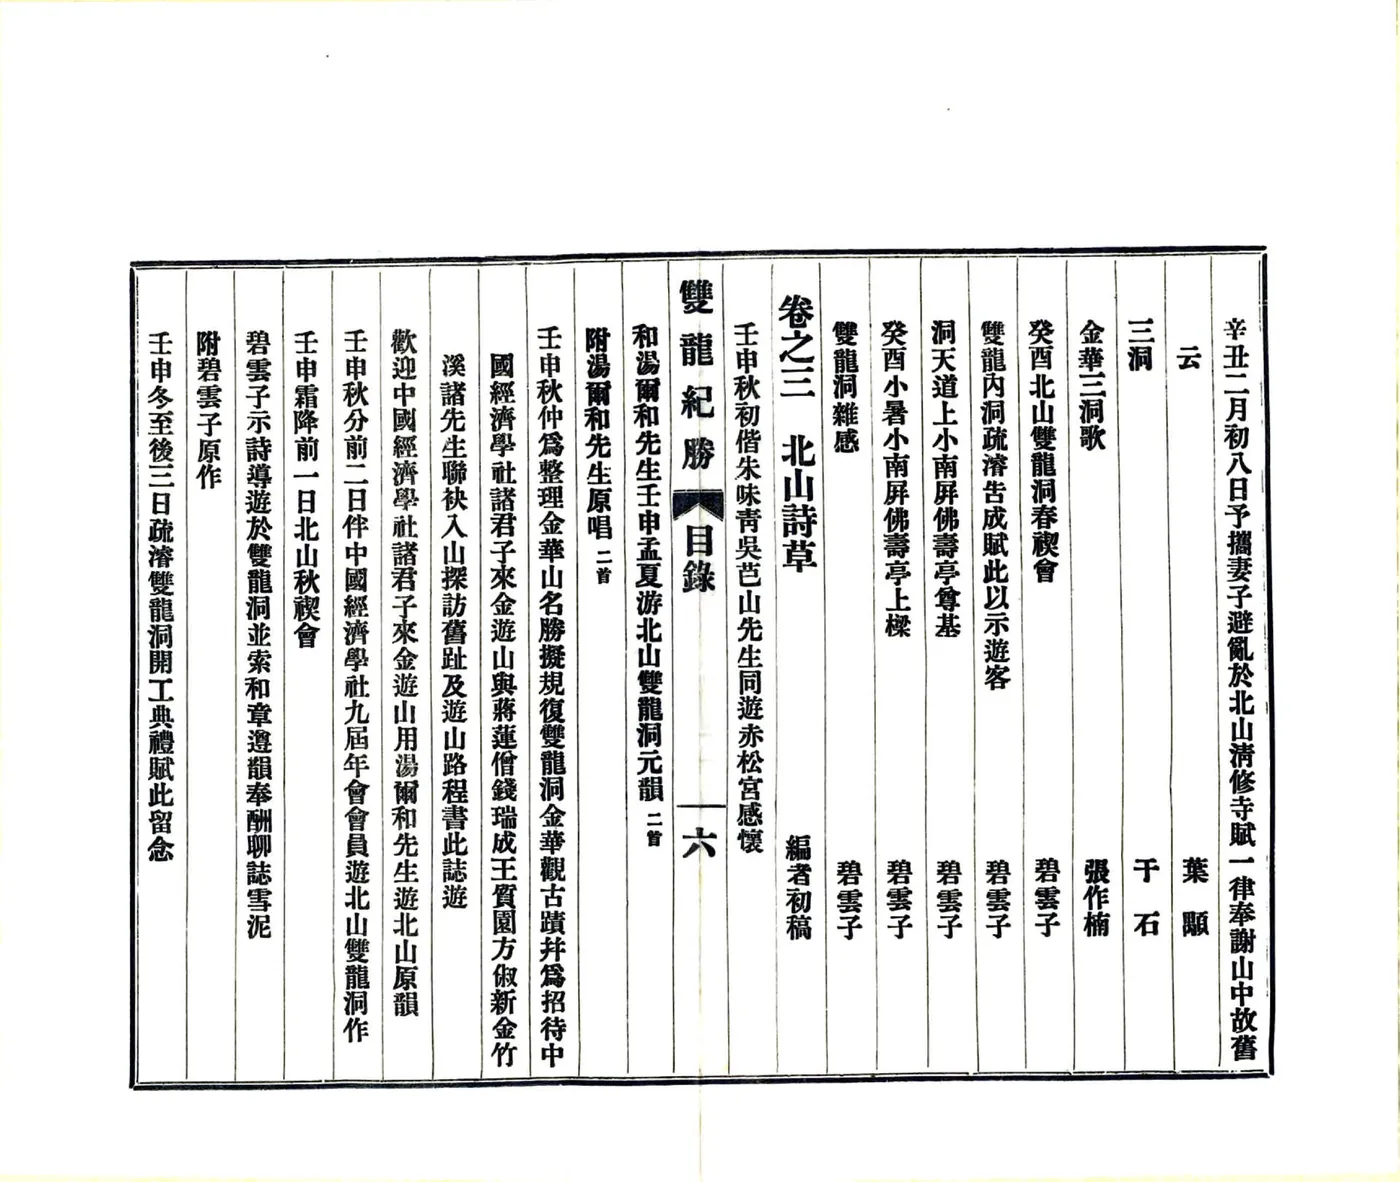 辛丑二月初八日予攜妻子避亂於北山淸修寺賦一律奉謝山中故舊
云 葉顒
三洞 于石
金華三洞歌 張作楠
癸酉北山雙龍洞春禊會 碧雲子
雙龍內洞疏濬告成賦此以示遊客 碧雲子
洞天道上小南屏佛壽亭尊基 碧雲子
癸酉小暑小南屏佛壽亭上樑 碧雲子
雙龍洞雜感 碧雲子
卷之三 北山詩草 編者初稿
壬申秋初偕朱味靑吳芭山先生同遊赤松宮感懷
雙龍紀勝 目錄 六
和湯爾和先生壬申孟夏游北山雙龍洞元韻 二首
附湯爾和先生原唱 二首
壬申秋仲爲整理金華山名勝擬規復雙龍洞金華觀古蹟并爲招待中
國經濟學社諸君子來金遊山與蔣蓮僧錢瑞成王質園方俶新金竹
溪諸先生聯袂入山探訪舊趾及遊山路程書此誌遊
歡迎中國經濟學社諸君子來金遊山用湯爾和先生遊北山原韻
壬申秋分前二日伴中國經濟學社九屆年會會員遊北山雙龍洞作
壬申霜降前一日北山秋禊會
碧雲子示詩導遊於雙龍洞並索和章遵韻奉酬聊誌雪泥
附碧雲子原作
壬申冬至後三日疏濬雙龍洞開工典禮賦此留念